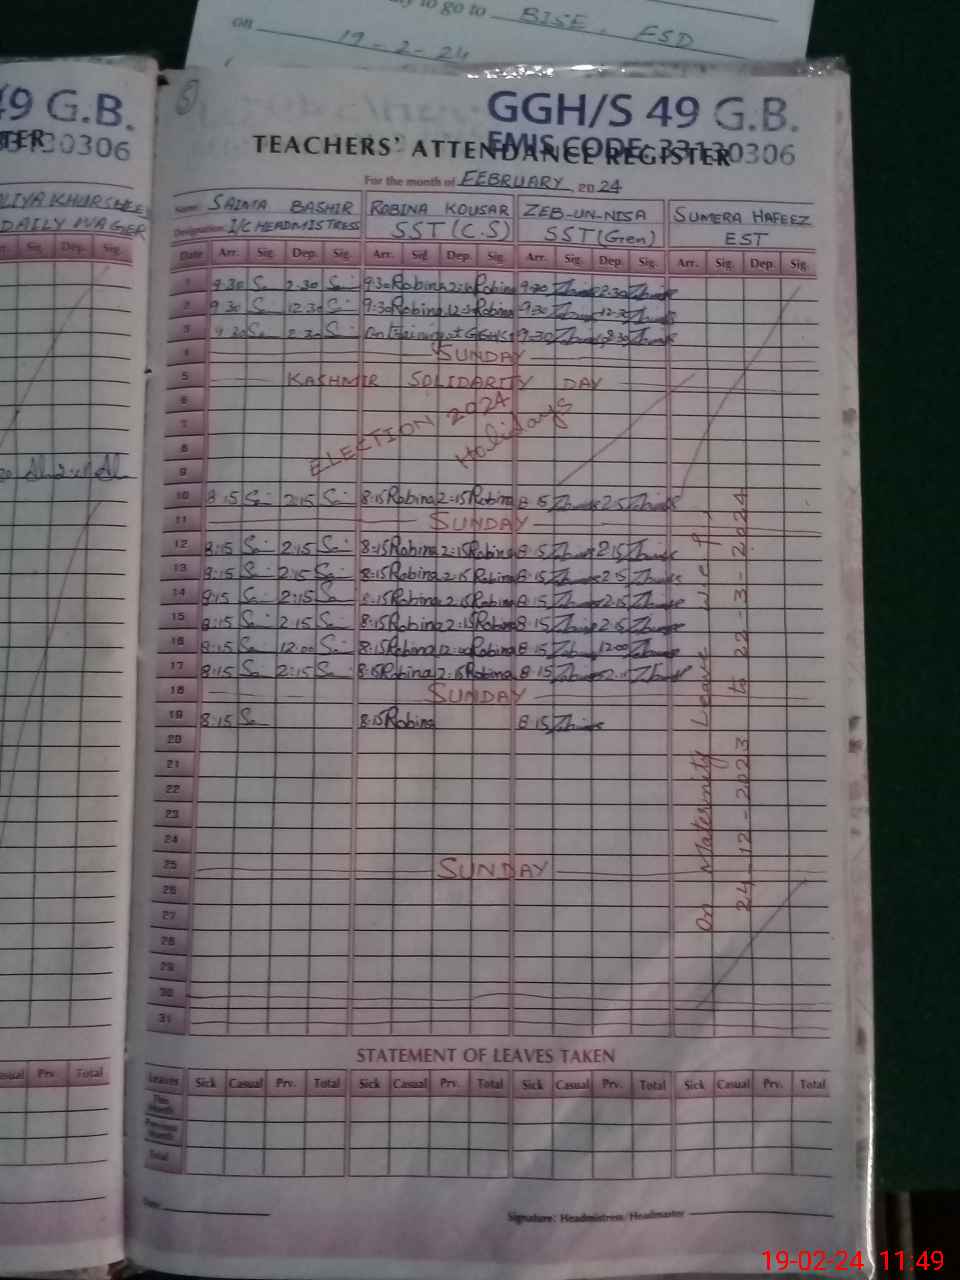 to go to BISE, FSD
on 19-2-24
49 G.B.
GGH/S 49 G.B.
EMIS CODE 33130306
TEACHERS' ATTENDANCE REGISTER
30306
For the month of FEBRUARY, 2024
KHURSHEE
DAILY WAGER
Name: SAIMA BASHIR ROBINA KOUSAR ZEB-UN-NISA SUMERA HAFEEZ
Designation: I/C HEADMISTRESS SST (C.S) SST (Gen) EST
Sig. Dep. Sig.
Date Arr. Sig. Dep. Sig. Arr. Sig. Dep. Sig. Arr. Sig. Dep. Sig. Arr. Sig. Dep. Sig.
1 9.30 2.30 9.30 Robina Robina 9.30 2.30
2 9.30 12.30 9.30 Robina Robina 9.30 12.30
3 9.30 2.30 On training at 9.30
4 SUNDAY
5 KASHMIR SOLIDARITY DAY
6
7
8
9
ELECTION 2024
Holidays
10 8:15 2:15 8:15 Robina 2:15 Robina 8 15
11 SUNDAY
12 8:15 2:15 8:15 Robina 2:15 Robina 8 15 2 15
13 8:15 2:15 8:15 Robina 2:15 Robina 8 15 2 15
14 8:15 2:15 8:15 Robina 2:15 Robina 8 15 2 15
15 8:15 2:15 8:15 Robina 2:15 Robina 8 15
16 8:15 12:00 8:15 Robina 12:00 Robina 8 15 12:00
17 8:15 2:15 8:15 Robina 2:15 Robina 8 15
18 SUNDAY
19 8:15 8:15 Robina 8 15
20
21
22
23
24
25 SUNDAY
26
27
28
29
30
31
On Maternity Leave w e f
24-12-2023 to 22-3-2024
STATEMENT OF LEAVES TAKEN
Casual Prv. Total
Leaves Sick Casual Prv. Total Sick Casual Prv. Total Sick Casual Prv. Total Sick Casual Prv. Total
This Month
Previous Month
Total
Date:
Signature: Headmistress/Headmaster
19-02-24 11:49